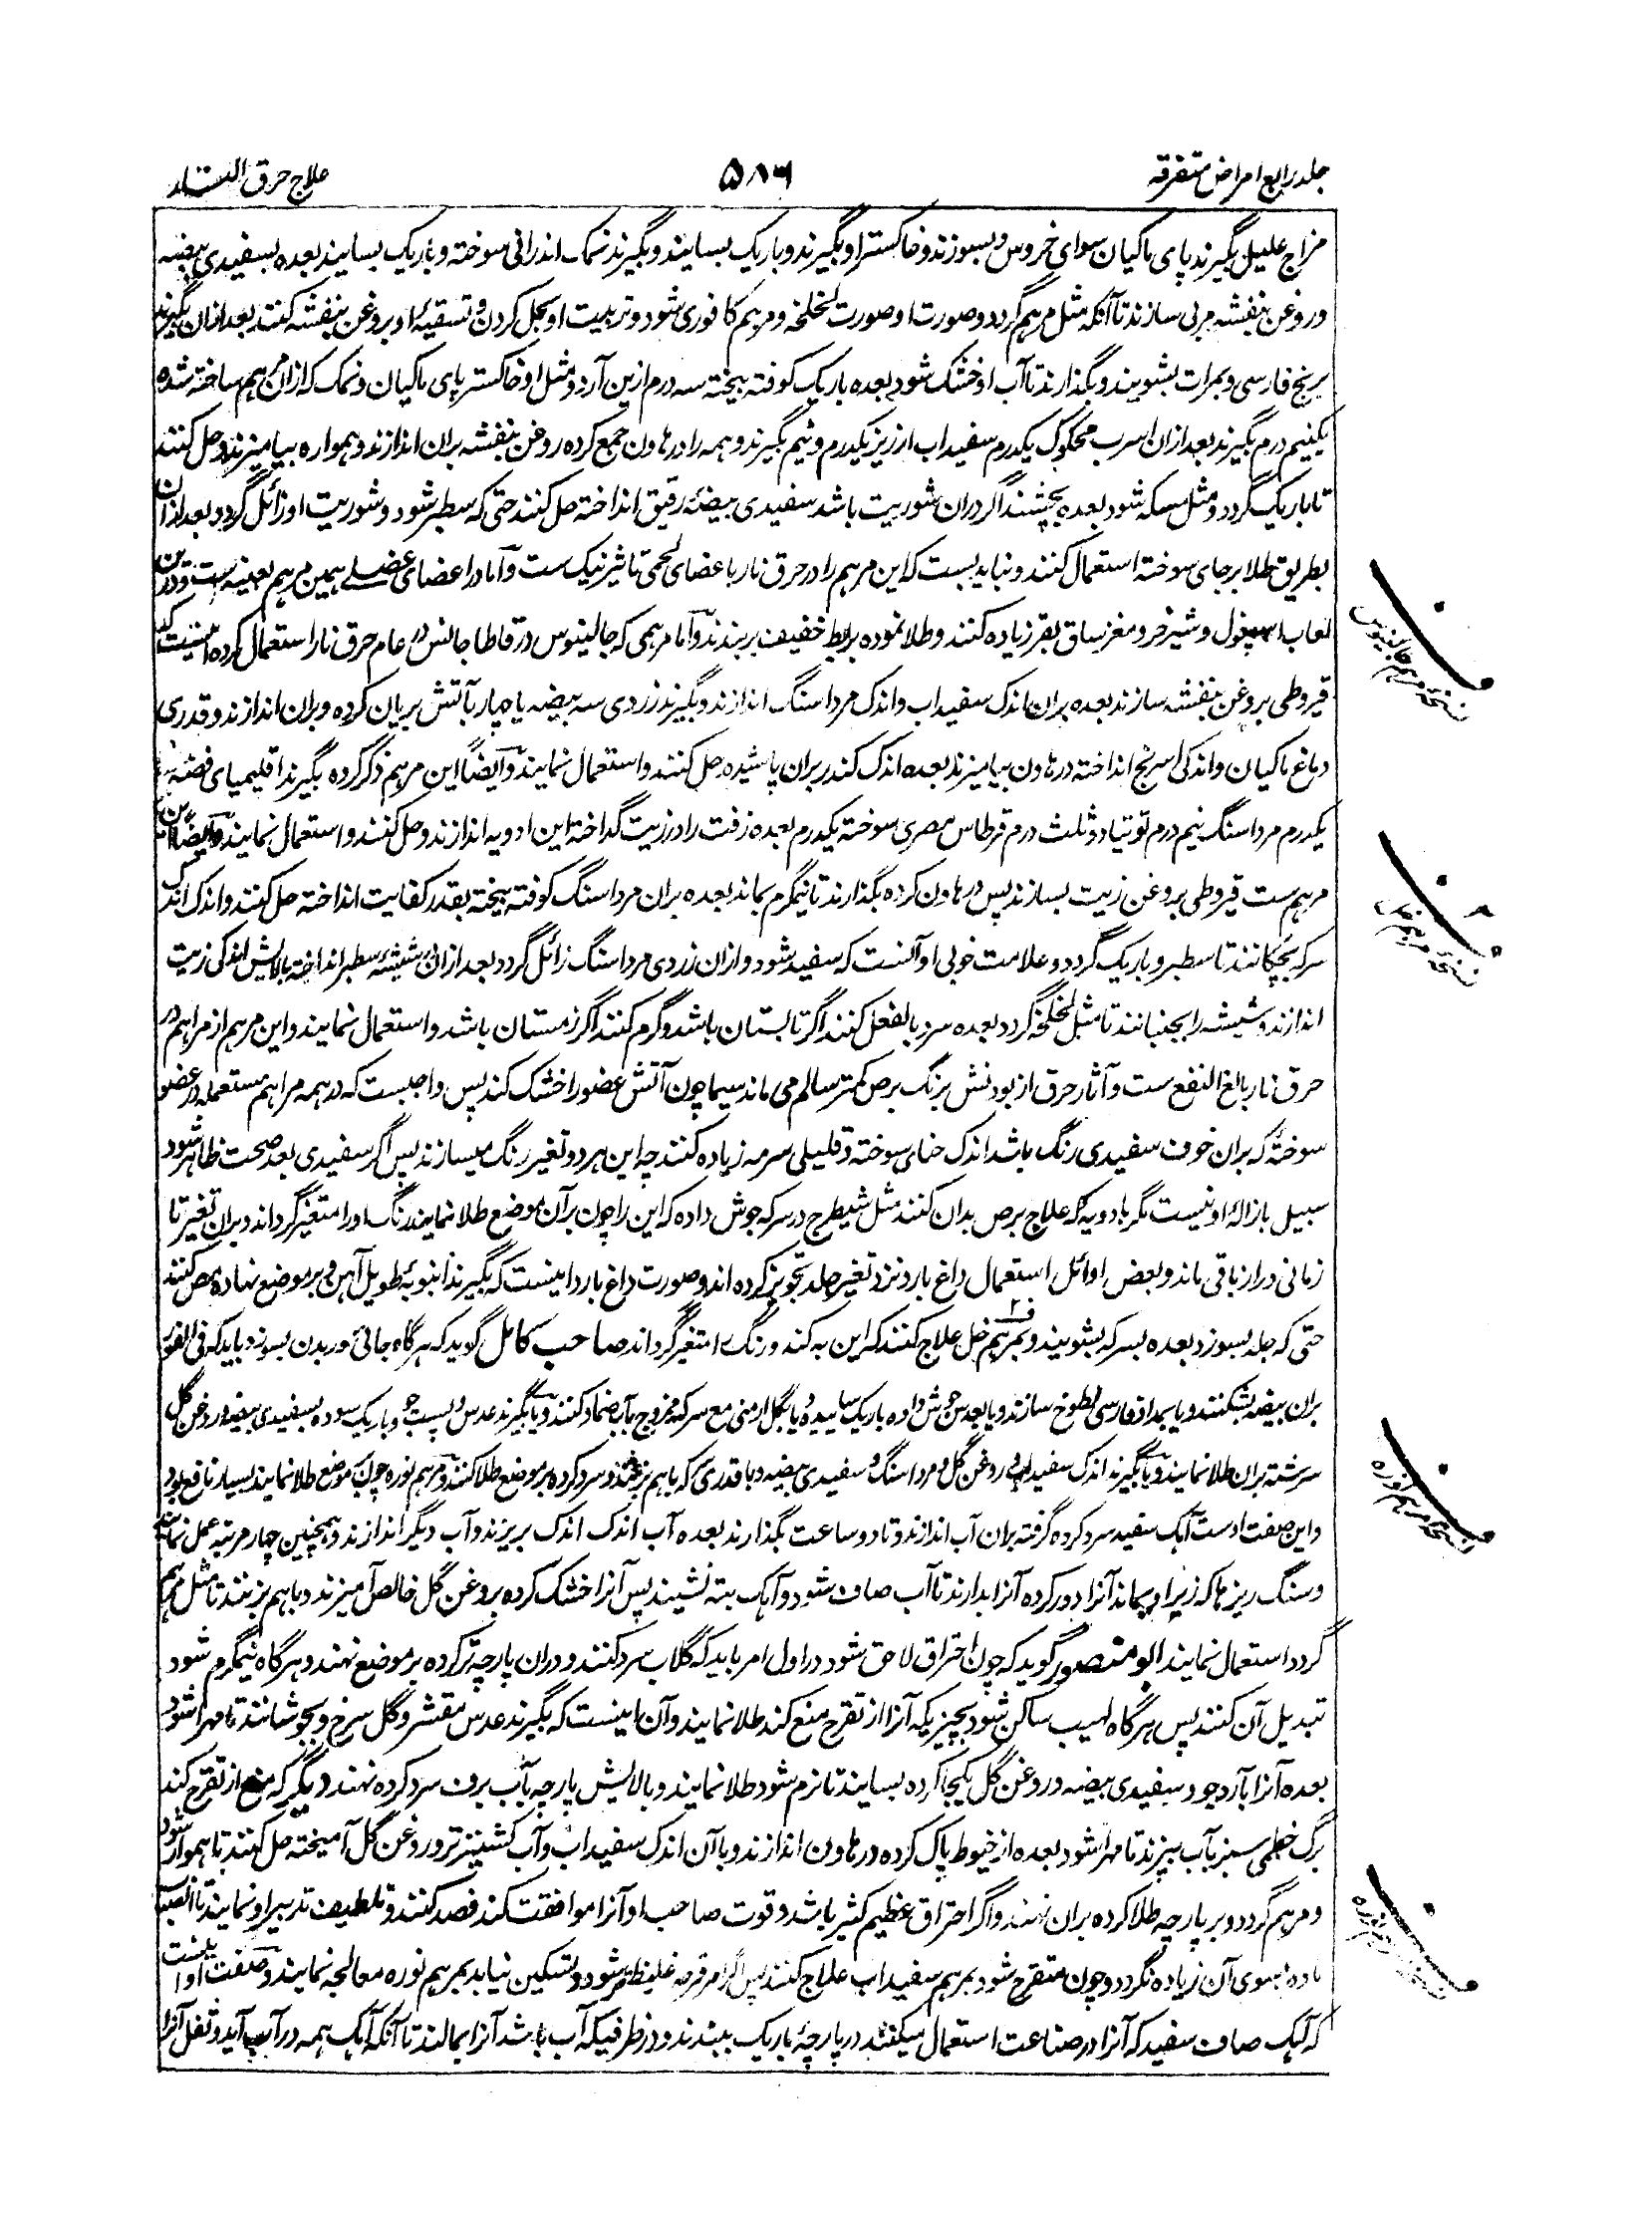 جلد رابع امراض متفرقه
۵۸۶
علاج حرق النار
مزاج علیل بگیرند پای ماکیان سوای خروس و بسوزند و خاکستر او بگیرند و باریک بسایند و بگیرند نمک اندرانی سوخته و باریک بسایند بعده بسفیدی بیضه
و روغن بنفشه مربی سازند تا آنکه مثل مرهم گردد و صورت او صورت لخلخه و مرهم کافوری شود و تربیت او بحل کردن و تسقیۀ او بروغن بنفشه کنند بعد ازان بگیرند
برنج فارسی و بمرات بشویند و بگذارند تا آب او خشک شود بعده باریک کوفته بیخته سه درم ازین آرد و مثل او خاکستر پای ماکیان و نمک که ازان مرهم ساخته شده
یکنیم درم بگیرند بعد ازان اسرب محکوک یکدرم سفیداب ارزیز یکدرم و نیم بگیرند و همه را در هاون جمع کرده روغن بنفشه بران اندازند و همواره بیامیزند و حل کنند
تا باریک گردد و مثل مسکه شود بعده بچشند اگر دران شوریت باشد سفیدی بیضۀ رقیق انداخته حل کنند حتی که سطبر شود و شوریت او زائل گردد بعد ازان
بطریق طلا بر جای سوخته استعمال کنند و نباید بست که این مرهم را در حرق نار باعضای لحمی تاثیر نیک ست و اما در اعضای عضلے همین مرهم بعینه ست و درین
لعاب اسپغول و شیر خر و مغز ساق بقر زیاده کنند و طلا نموده بربط خفیف بربندند و اما مرهمی که جالینوس در قاطاجانس در عام حرق نار استعمال کرده اینست که
قیروطی بروغن بنفشه سازند بعده بران اندک سفیداب و اندک مرداسنگ اندازند و بگیرند زردی سه بیضه یا چهار بآتش بریان کرده و بران اندازند و قدری
دماغ ماکیان و اندکی اسرنج انداخته در هاون بیامیزند بعده اندک کندر بران پاشیده حل کنند و استعمال نمایند و ایضاً این مرهم ذکر کرده بگیرند اقلیمیای فضه
یکدرم مرداسنگ نیم درم توتیا دو ثلث درم قرطاس مصری سوخته یکدرم بعده زفت را در زیت گداخته این ادویه اندازند و حل کنند و استعمال نمایند و ایضاً این
مرهم ست قیروطی بروغن زیت بسازند پس در هاون کرده بگذارند تا نیمگرم بماند بعده بران مرداسنگ کوفته بیخته بقدر کفایت انداخته حل کنند و اندک اندک
سرکه بچکانند تا سطبر و باریک گردد و علامت خوبی او آنست که سفید شود و ازان زردی مرداسنگ زائل گردد بعد ازان در شیشۀ سطبر انداخته بالایش اندکی زیت
اندازند و شیشه را بجنبانند تا مثل لخلخه گردد بعده سرد بالفعل کنند اگر تابستان باشد و گرم کنند اگر زمستان باشد و استعمال نمایند و این مرهم از مراهم در
حرق نار بالغ النفع ست و آثار حرق از بودنش برنگ برص کمتر سالم می ماند سیما چون آتش عضو را خشک کند پس واجبست که در همه مراهم مستعمله در عضو
سوختۀ که بران خوف سفیدی رنگ باشد اندک حنای سوخته و قلیلی سرمه زیاده کنند چه این هر دو تغیر رنگ میسازند پس اگر سفیدی بعد صحت ظاهر شود
سبیل بازالۀ او نیست مگر بادویه که علاج برص بدان کنند مثل شیطرج در سرکه جوش داده که این را چون بر آن موضع طلا نمایند رنگ او را متغیر گرداند و بران تغیر تا
زمانی دراز باقی ماند و بعض اوائل استعمال داغ بارد نزد تغیر جلد تجویز کرده اند و صورت داغ بارد اینست که بگیرند انبوبۀ طویل آهن و بر موضع نهاده مص کنند
حتی که جلد بسوزد بعده بسرکه بشویند و بمرهم خل علاج کنند که این به کند و رنگ را متغیر گرداند صاحب کامل گوید که هرگاه جائی در بدن بسوزد باید که فی الفور
بران بیضه بشکنند و یا بمداد فارسی لطوخ سازند و یا بعدس جوش داده باریک ساییده و یا بگل ارمنی مع سرکه ممزوج بآب ضماد کنند و یا بگیرند عدس و پست جو و باریک سوده بسفیدی بیضه و روغن گل
سرشته بران طلا نمایند و یا بگیرند اندک سفیداب و روغن گل و مرداسنگ و سفیدی بیضه و با قدری سرکه باهم بزنند و سرد کرده بر موضع طلا کنند و مرهم نوره چون بر موضع طلا نمایند بسیار نافع بود
و این صفت اوست آهک سفید سرد کرده گرفته بران آب اندازند و تا دو ساعت بگذارند بعده آب اندک اندک بریزند و آب دیگر اندازند و همچنین چهار مرتبه عمل نمایند
و سنگ ریزها که زیر او بماند آنرا دور کرده آنرا بدارند تا آب صاف شود و آهک بته نشیند پس آنرا خشک کرده بروغن گل خالص آمیزند و باهم بزنند تا مثل مرهم
گردد استعمال نمایند ابو منصور گوید که چون احتراق لاحق شود در اول امر باید که گلاب سرد کنند و دران پارچه تر کرده بر موضع نهند و هرگاه نیمگرم شود
تبدیل آن کنند پس هرگاه لهیب ساکن شود بچیزیکه آنرا از تقرح منع کند طلا نمایند و آن اینست که بگیرند عدس مقشر و گل سرخ و بجوشانند تا مهرا شود
بعده آنرا بآرد جو و سفیدی بیضه و روغن گل یکجا کرده بسایند تا نرم شود طلا نمایند و بالایش پارچه بآب برف سرد کرده نهند دیگر که منع از تقرح کند
برگ خطمی سبز بآب بپزند تا مهرا شود بعده از خیوط پاک کرده در هاون اندازند و با آن اندک سفیداب و آب کشنیز تر و روغن گل آمیخته حل کنند تا هموار شود
و مرهم گردد و بر پارچه طلا کرده بران نهند و اگر احتراق عظیم کثیر باشد و قوت صاحب او آنرا موافقت کند فصد کنند و تلطیف تدبیر او نمایند تا انصباب
ماده بسوی آن زیاده نگردد و چون متقرح شود بمرهم سفیداب علاج کنند پس اگر امر قرحه غلیظ شود و تسکین نیابد بمرهم نوره معالجه نمایند و صفت او اینست
که آهک صاف سفید که آنرا در صناعت استعمال میکنند در پارچۀ باریک ببندند و در ظرفیکه آب باشد آنرا بمالند تا آنکه آهک همه در آب آید و ثفل آنرا
نسخۀ مرهم جالینوس
نسخۀ مرهم
نسخۀ مرهم نوره
نسخۀ مرهم نوره